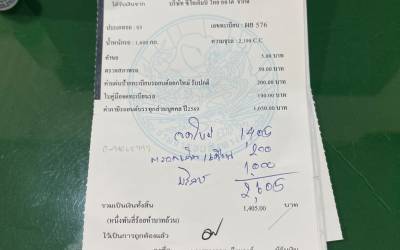 ได้รับเงินจาก บริษัท
ประเภทรถ : 03 เลขทะเบียน : ผผ 576
น้ำหนักรถ : 1,600 กก. ความจุรถ : 2,198 C.C
คำขอ 5.00 บาท
ตรวจสภาพรถ 50.00 บาท
ค่าแผ่นป้ายทะเบียนรถยนต์ออกใหม่ รับปกติ 200.00 บาท
ใบคู่มือจดทะเบียนรถ 100.00 บาท
ค่าภาษีรถยนต์บรรทุกส่วนบุคคล ปี2569 1,050.00 บาท
1,405
200
บริการ 1,000
2,605
รวมเป็นเงินทั้งสิ้น 1,405.00 บาท
(หนึ่งพันสี่ร้อยห้าบาทถ้วน)
ไว้เป็นการถูกต้องแล้ว